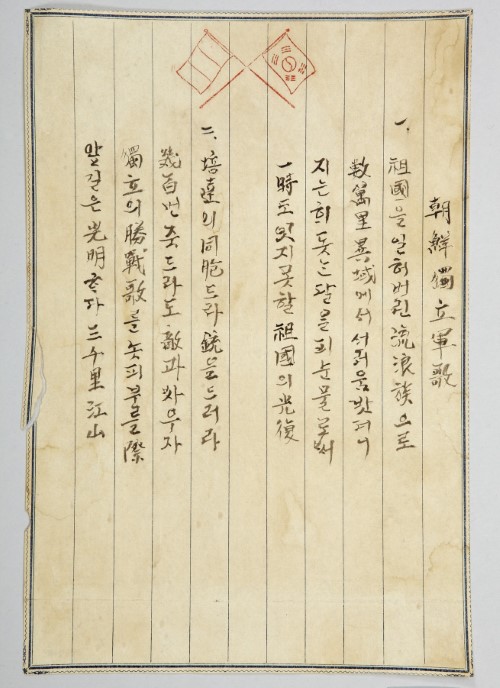 朝鮮獨立軍歌
一、祖國을 일허버린 流浪族으로
數萬里 異域에서 서러움 밧거니
지는 희 돗는 달을 피눈물로써
一時도 잇지 못할 祖國의 光復
二、培達의 同胞드라 銃을 드러라
幾百번 죽드라도 敵과 싸우자
獨立의 勝戰歌를 놋피 부를 際
앞길은 光明하다 三千里江山